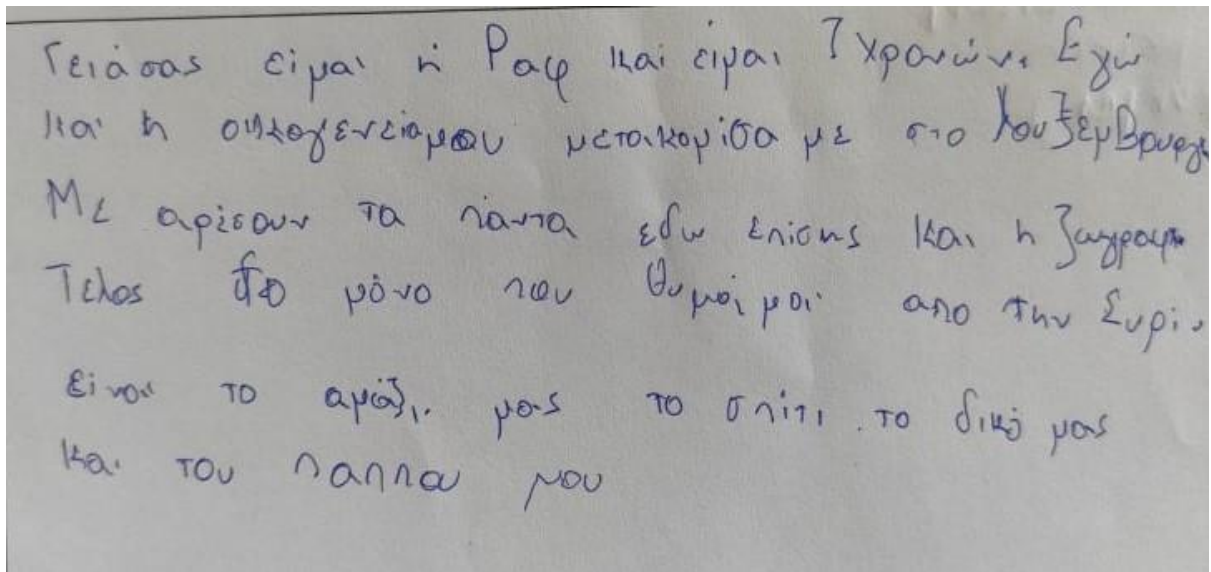 Γειάσας είμαι ή Ραφ και είμαι 7 χρονών. Εγώ
και η οικογενείαμου μετακομίσα με στο Λουξεμβουργο
Με αρέσουν τα πάντα εδω επίσης και η ζωγραφι
Τελος το μόνο που θυμάμαι απο την Συρί
είναι το αμάξι μας το σπίτι το δικό μας
και του παππου μου